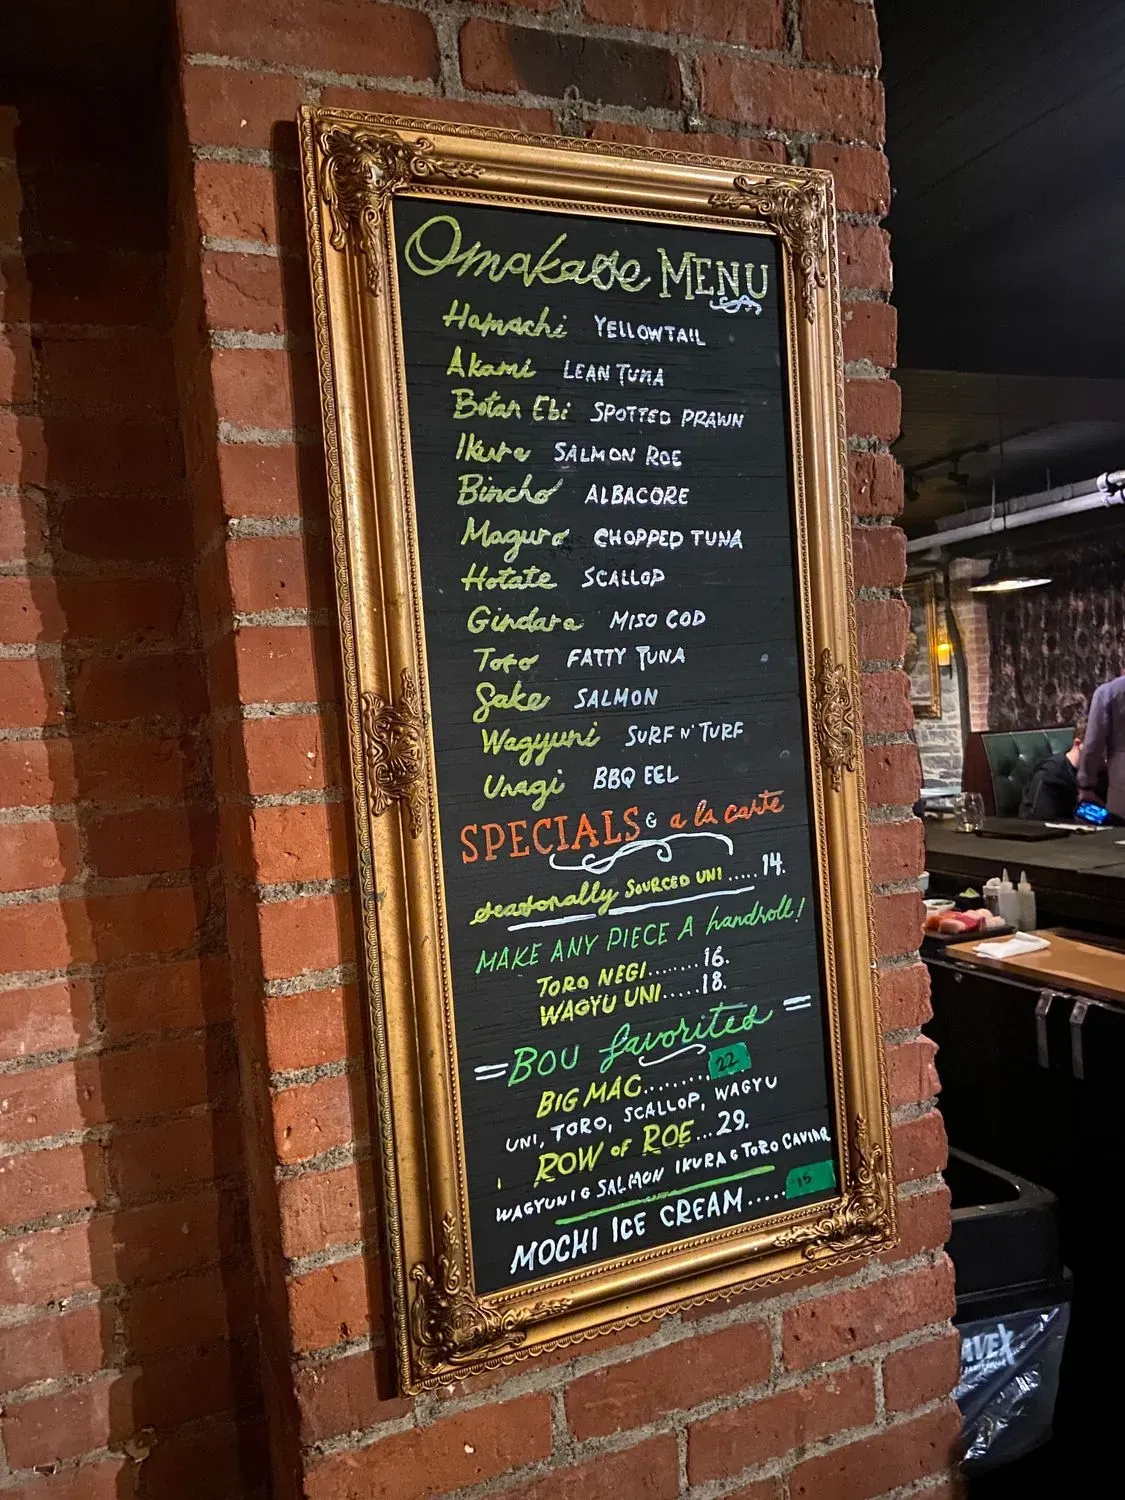 Omakase MENU
Hamachi YELLOWTAIL
Akami LEAN TUNA
Botan Ebi SPOTTED PRAWN
Ikura SALMON ROE
Bincho ALBACORE
Maguro CHOPPED TUNA
Hotate SCALLOP
Gindara MISO COD
Toro FATTY TUNA
Sake SALMON
Wagyuni SURF N' TURF
Unagi BBQ EEL
SPECIALS & a la carte
seasonally SOURCED UNI.....14.
MAKE ANY PIECE A handroll!
TORO NEGI........16.
WAGYU UNI.....18.
=BOU favorited=
BIG MAC.........22
UNI, TORO, SCALLOP, WAGYU
ROW of ROE...29.
WAGYUNI & SALMON IKURA & TORO CAVIAR
MOCHI ICE CREAM.....15
AVEX